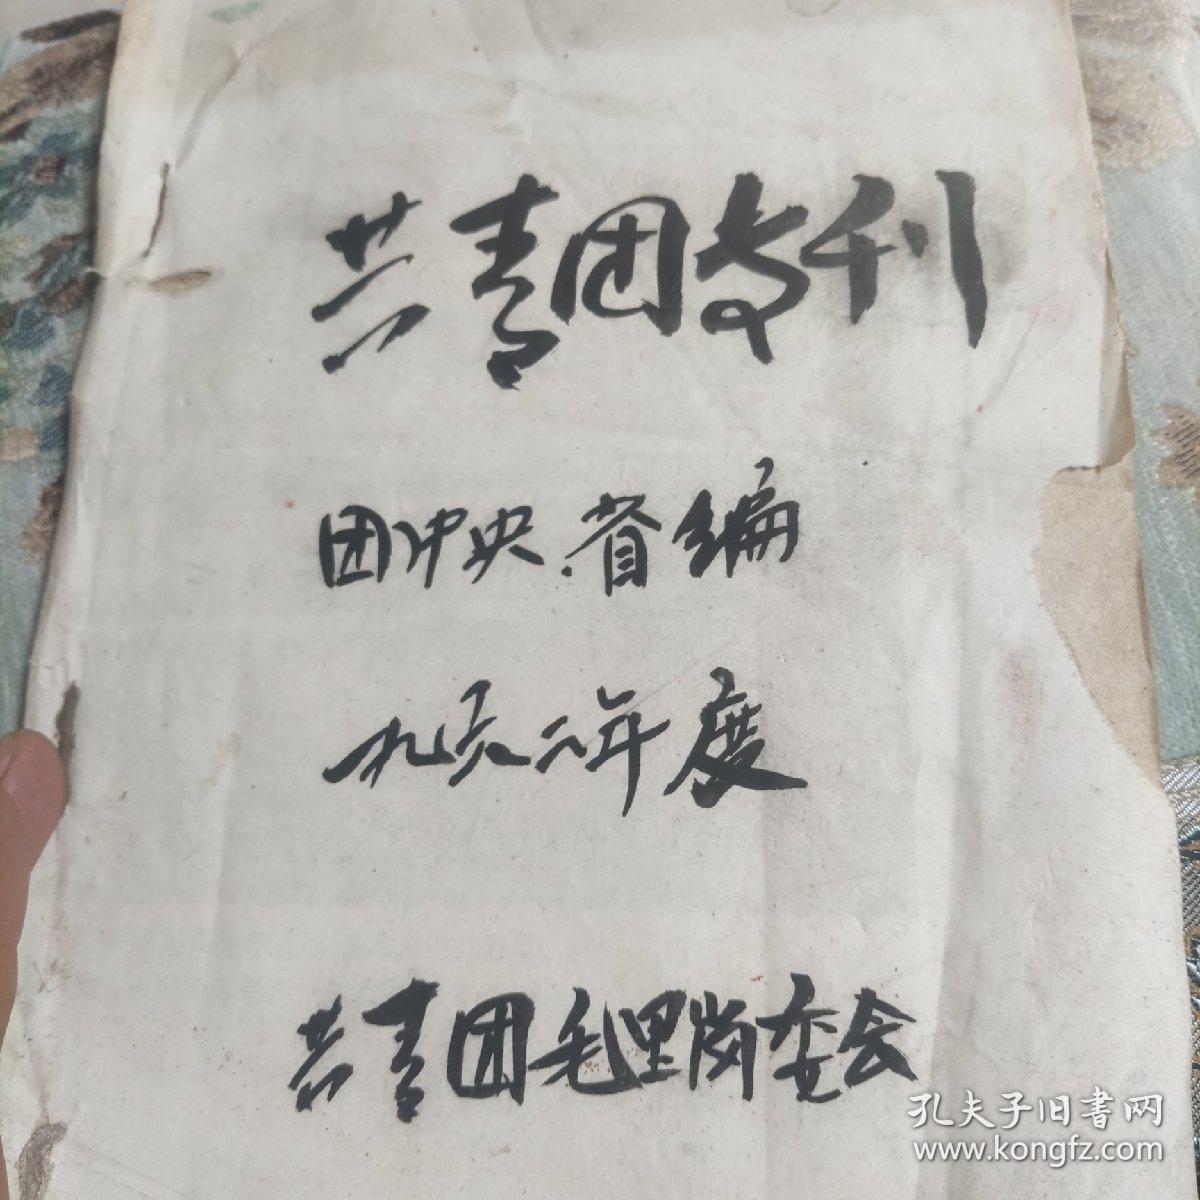 共青团专刊
团中央.省编
一九六二年度
共青团毛里岗委会
孔夫子旧书网
www.kongfz.com